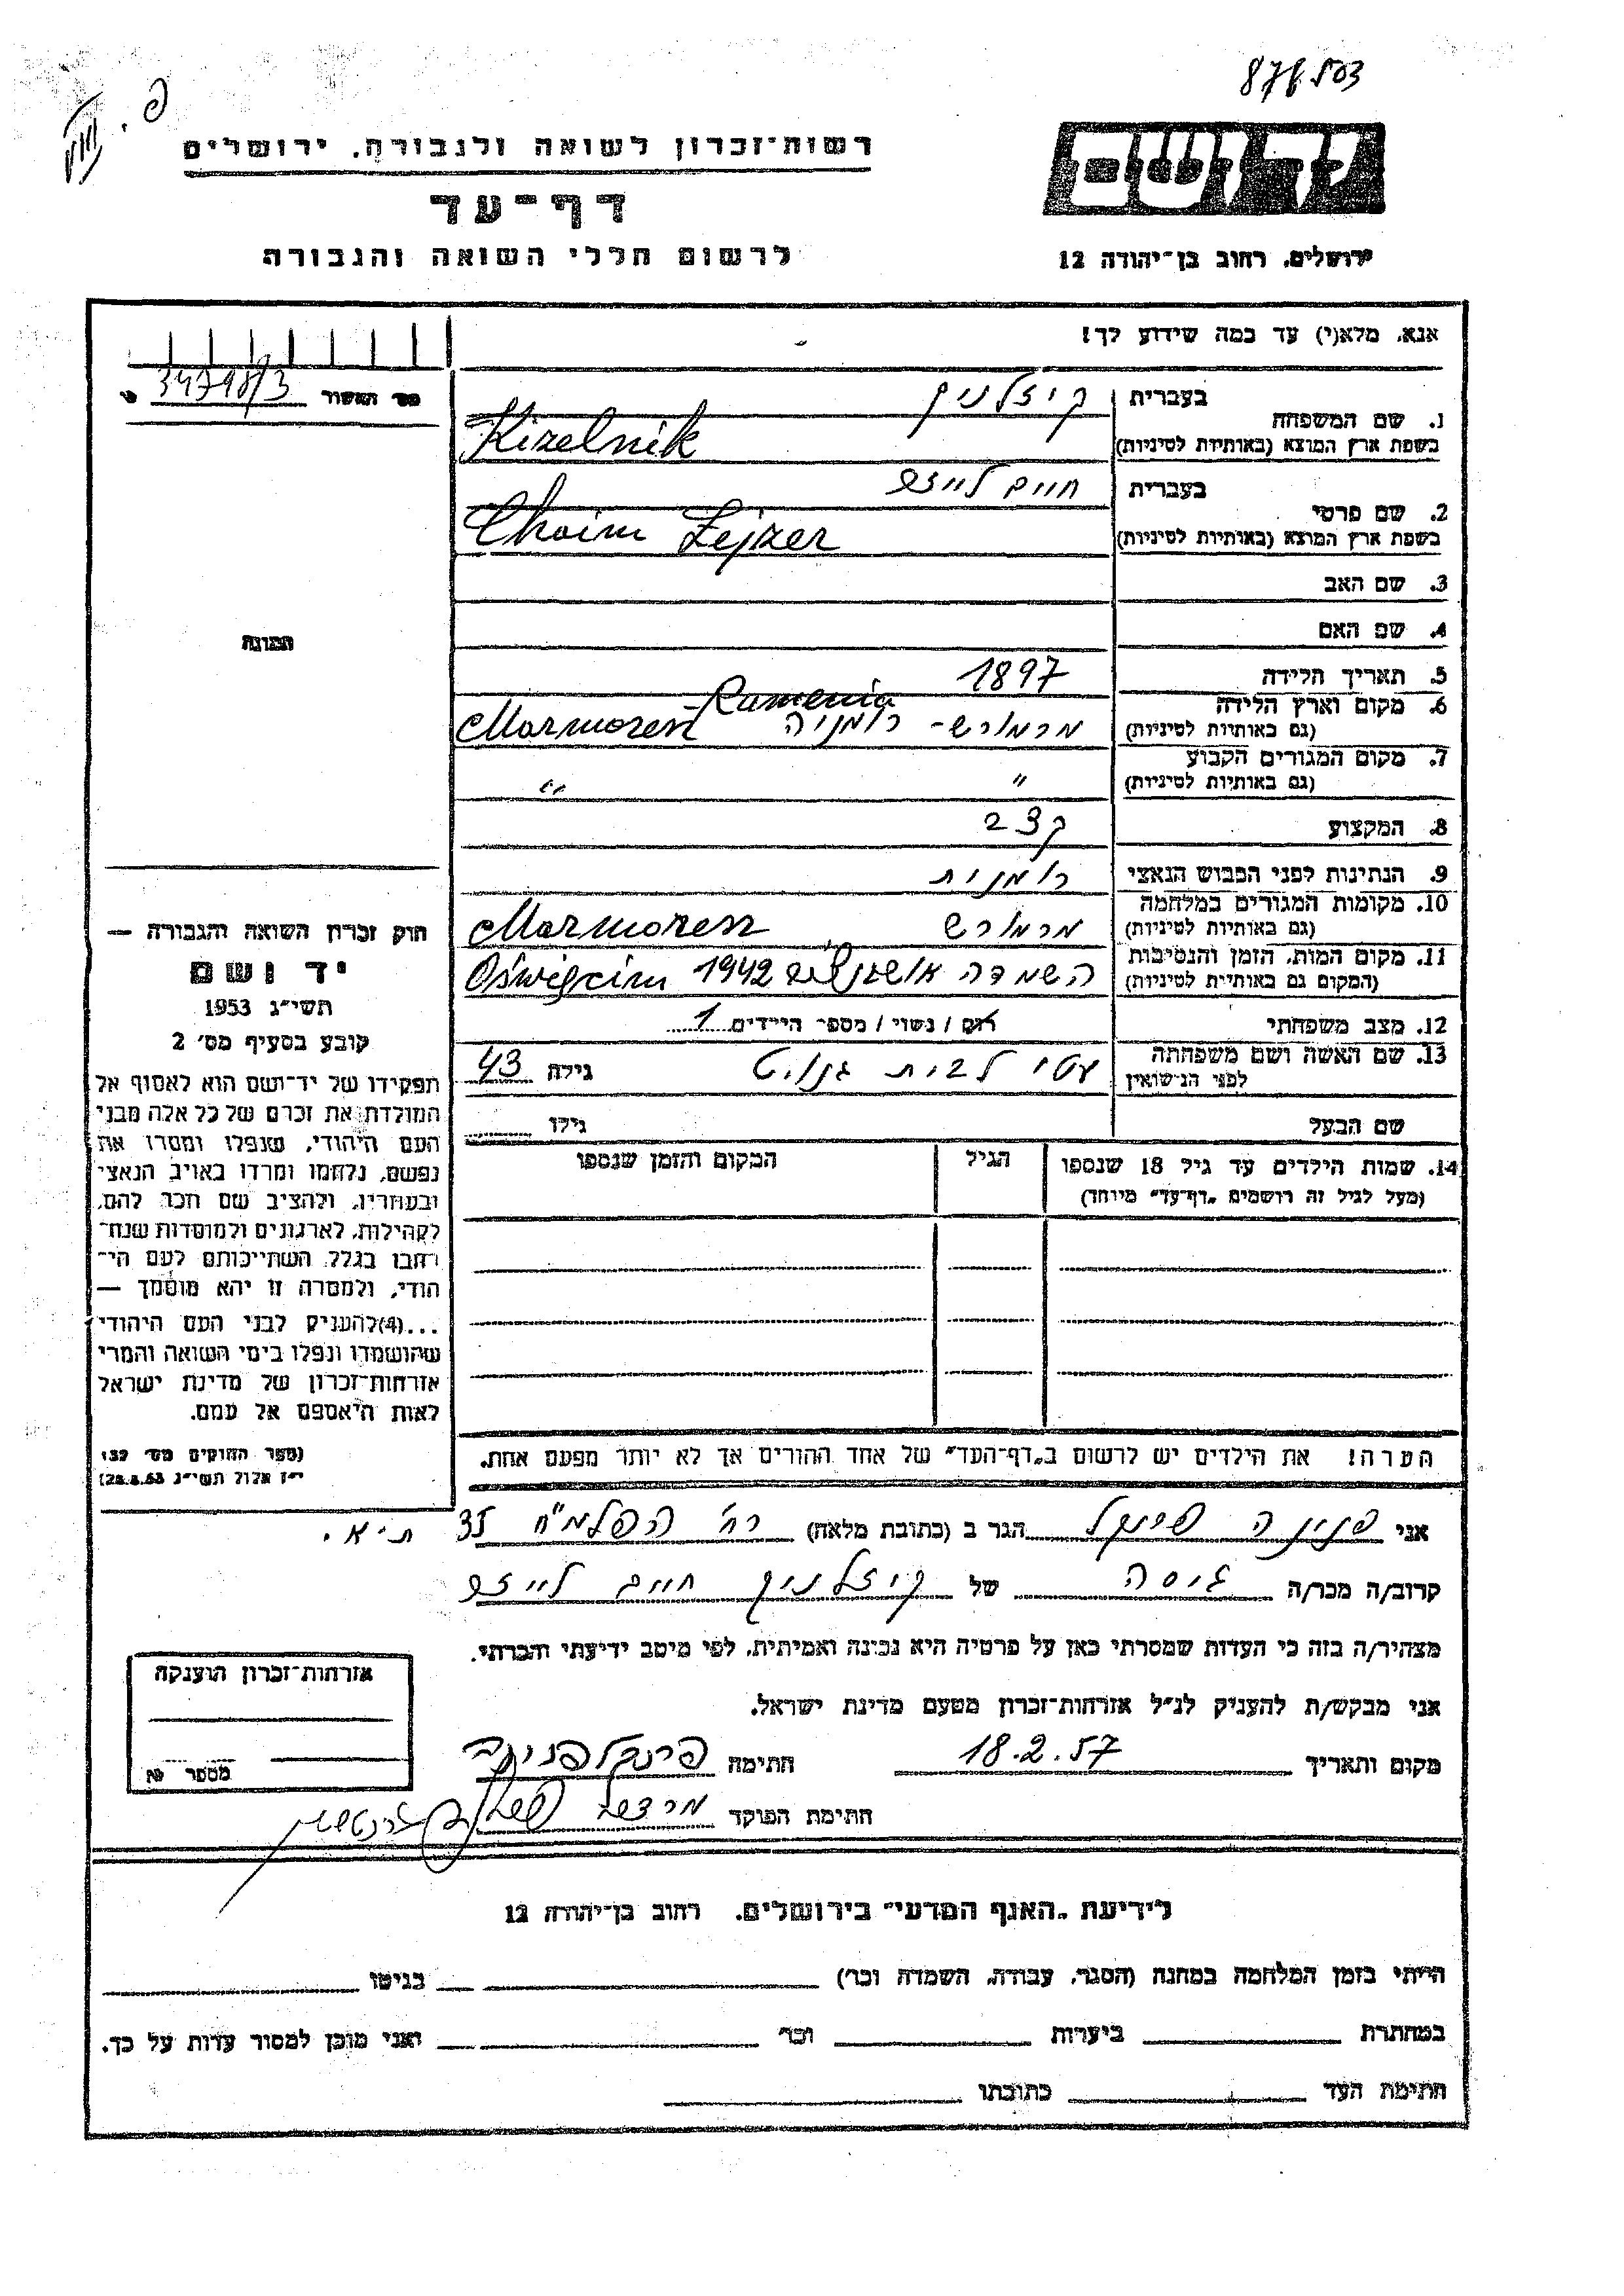 878503
רשות־זכרון לשואה ולגבורה, ירושלים
דף־עד
לרשום חללי השואה והגבורה
יד ושם
ירושלים, רחוב בן־יהודה 12
אנא, מלא(י) עד כמה שידוע לך!
מס' האשור 34798/3
1. שם המשפחה בעברית קיזלניק
בשפת ארץ המוצא (באותיות לטיניות) Kizelnik
2. שם פרטי בעברית חיים לייזר
בשפת ארץ המוצא (באותיות לטיניות) Chaim Lejzer
3. שם האב
4. שם האם
תמונה
5. תאריך הלידה 1897
6. מקום וארץ הלידה מרמורש - רומניה Marmoresz Rumenia
(גם באותיות לטיניות)
7. מקום המגורים הקבוע " "
(גם באותיות לטיניות)
8. המקצוע קצב
9. הנתינות לפני הכבוש הנאצי רומנית
10. מקומות המגורים במלחמה מרמורש Marmoresz
(גם באותיות לטיניות)
11. מקום המות, הזמן והנסיבות השמדה 1942 Oświęcim
(המקום גם באותיות לטיניות)
12. מצב משפחתי רווק / נשוי / מספר הילדים 1
13. שם האשה ושם משפחתה לבית גילה 43
לפני הנישואין
שם הבעל גילו
14. שמות הילדים עד גיל 18 שנספו הגיל המקום והזמן שנספו
(מעל לגיל זה רושמים "דף־עד" מיוחד)
הערה! את הילדים יש לרשום ב"דף־העד" של אחד ההורים אך לא יותר מפעם אחת.
חוק זכרון השואה והגבורה —
יד ושם
תשי"ג 1953
קובע בסעיף מס' 2
תפקידו של יד־ושם הוא לאסוף אל
המולדת את זכרם של כל אלה מבני
העם היהודי, שנפלו ומסרו את
נפשם, נלחמו ומרדו באויב הנאצי
ובעוזריו, ולהציב שם וזכר להם,
לקהילות, לארגונים ולמוסדות שנח־
רבו בגלל השתייכותם לעם הי־
הודי, ולמטרה זו יהא מוסמך —
...(4) להעניק לבני העם היהודי
שהושמדו ונפלו בימי השואה והמרי
אזרחות־זכרון של מדינת ישראל
לאות היאספם אל עמם.
(ספר החוקים מס' 132
י"ז אלול תשי"ג 28.8.53)
אני פנינה הגר ב (כתובת מלאה) רח' הפלמ"ח ת"א.
קרוב/ה מכר/ה גיסה של קיזלניק חיים לייזר
מצהיר/ה בזה כי העדות שמסרתי כאן על פרטיה היא נכונה ואמיתית, לפי מיטב ידיעתי והכרתי.
אני מבקש/ת להעניק לנ"ל אזרחות־זכרון מטעם מדינת ישראל.
מקום ותאריך 18.2.57 חתימה
חתימת הפוקד
אזרחות־זכרון הוענקה
מספר
לידיעת "האגף המדעי" בירושלים, רחוב בן־יהודה 12
הייתי בזמן המלחמה במחנה (הסגר, עבודה, השמדה וכו') בגיטו
במחתרת ביערות וכו' ואני מוכן למסור עדות על כך.
חתימת העד כתובתו